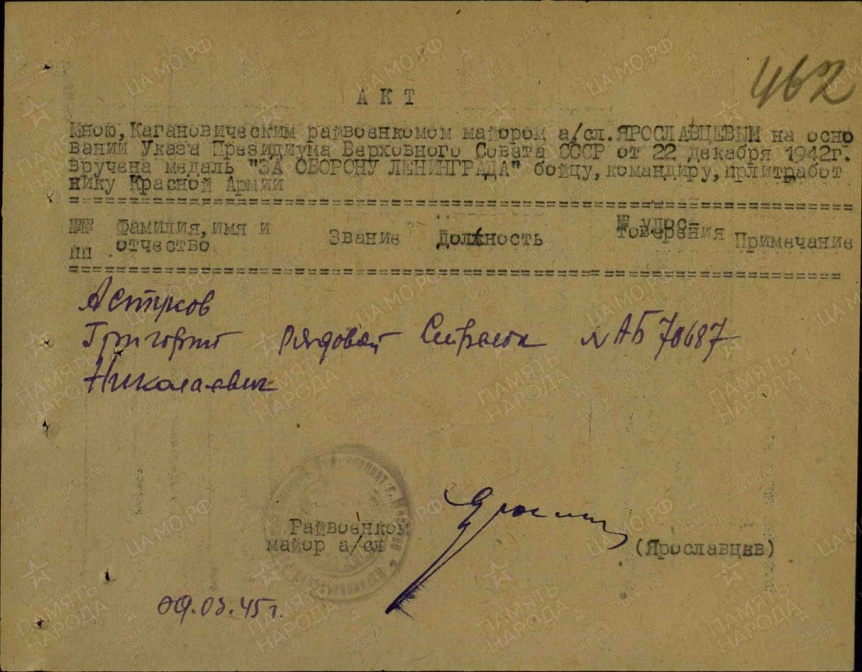 462
АКТ
Мною, Кагановическим райвоенкомом майором а/сл. ЯРОСЛАВЦЕВЫМ на осно
вании Указа Президиума Верховного Совета СССР от 22 декабря 1942г.
вручена медаль "ЗА ОБОРОНУ ЛЕНИНГРАДА" бойцу, командиру, прлитработ
нику Красной Армии
№№ Фамилия, имя и Звание Должность № удос- Примечание
пп отчество товерения
Григорий рядовой Стрелок № АБ 70687
Николаевич
Райвоенком
майор а/сл (Ярославцев)
09.03.45г.
ПАМЯТЬ НАРОДА
ЦАМО.РФ